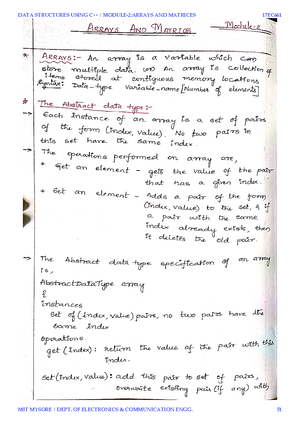 DATA STRUCTURES USING C++ | MODULE-2:ARRAYS AND MATRICES 17EC661
Module-2
ARRAYS AND MATRICES
* ARRAYS:- An array is a variable which can
store multiple data. (or) An array is collection of
items stored at contiguous memory locations
Syntax: Data-type Variable-name[Number of elements]
* The Abstract data type:-
→ Each instance of an array is a set of pairs
of the form (index, value). No two pairs in
this set have the same index.
→ The operations performed on array are,
* Get an element - gets the value of the pair
that has a given index.
* Set an element - Adds a pair of the form
(index, value) to the set, & if
a pair with the same
index already exists, then
it deletes the old pair.
→ The Abstract data type specification of an array
is,
AbstractDataType array
{
instances
Set of (index, value) pairs, no two pairs have the
same index
operations.
get (index): return the value of the pair with this
index.
set (index, value): add this pair to set of pairs,
overwrite existing pair (if any) with
MIT MYSORE | DEPT. OF ELECTRONICS & COMMUNICATION ENGG.